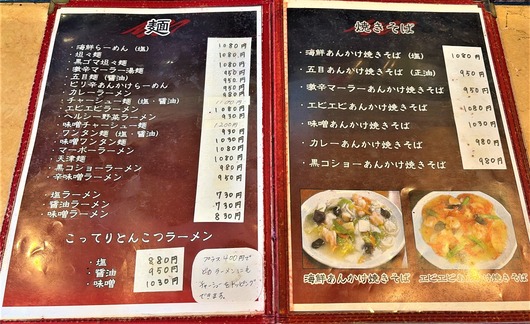 麺
・海鮮らーめん (塩) 1080円
・坦々麺
・黒ゴマ坦々麺
・激辛マーラー湯麺
・五目麺 (醤油)
・ピリ辛あんかけらーめん
・カレーラーメン
・チャーシュー麺 (塩・醤油)
・エビエビラーメン
・ヘルシー野菜ラーメン
・味噌チャーシュー麺
・ワンタン麺 (塩・醤油)
・味噌ワンタン麺
・マーボーラーメン
・天津麺
・黒コショーラーメン
・辛味噌ラーメン 950円
・塩ラーメン 730円
・醤油ラーメン 730円
・味噌ラーメン 830円
こってりとんこつラーメン
・塩 880円
・醤油 950円
・味噌 1030円
プラス400円で
どのラーメンにも
チャーシューをトッピング
できます。
焼きそば
・海鮮あんかけ焼きそば (塩) 1080円
・五目あんかけ焼きそば (正油) 950円
・激辛マーラーあんかけ焼きそば 950円
・エビエビあんかけ焼きそば 1080円
・味噌あんかけ焼きそば 1030円
・カレーあんかけ焼きそば 980円
・黒コショーあんかけ焼きそば 980円
海鮮あんかけ焼きそば
エビエビあんかけ焼きそば